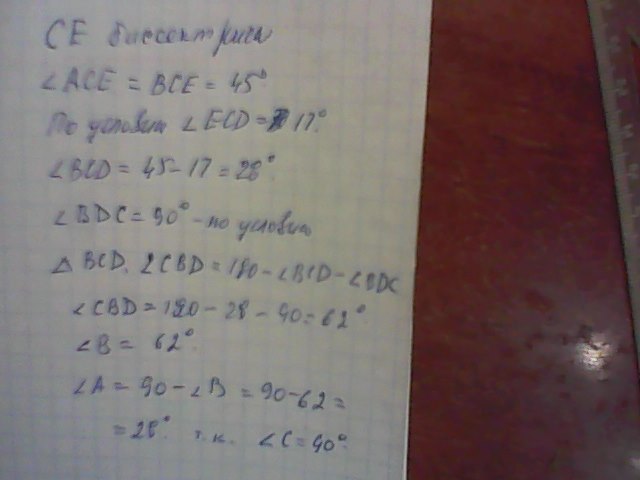 CE биссектриса
∠ACE = BCE = 45°
По условию ∠ECD = 17°.
∠BCD = 45-17 = 28°.
∠BDC = 90° - по условию
△ BCD. ∠CBD = 180 - ∠BCD - ∠BDC
∠CBD = 180 - 28 - 90 = 62°
∠B = 62°.
∠A = 90 - ∠B = 90-62 =
= 28°. т.к. ∠C = 90°.